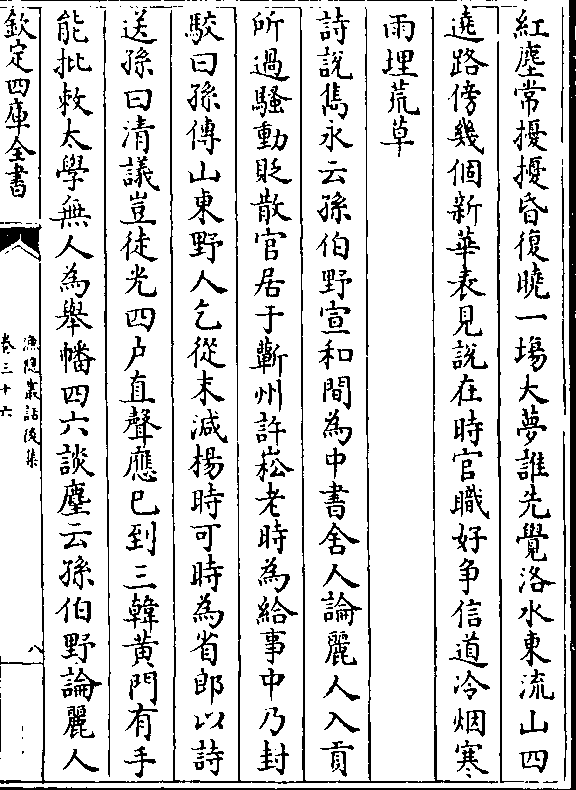 紅塵常擾擾昏復曉一場大夢誰先覺洛水東流山四
遶路傍幾個新華表見說在時官職好争信道冷烟寒
雨埋荒草
詩說雋永云孫伯野宣和間為中書舍人論麗人入貢
所過騷動貶散官居于蘄州許崧老時為給事中乃封
駮曰孫傅山東野人乞從末減楊時可時為省郎以詩
送孫曰清議豈徒光四户直聲應已到三韓黄門有手
能批敕太學無人為舉幡四六談麈云孫伯野論麗人
欽定四庫全書
漁隠叢話後集
卷三十六
八